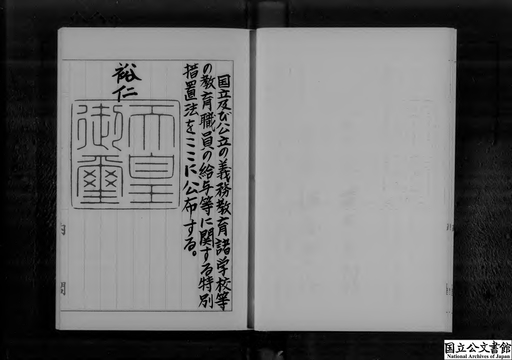 国立及び公立の義務教育諸学校等
の教育職員の給与等に関する特別
措置法をここに公布する。
裕仁
天皇
御璽
国立公文書館
National Archives of Japan